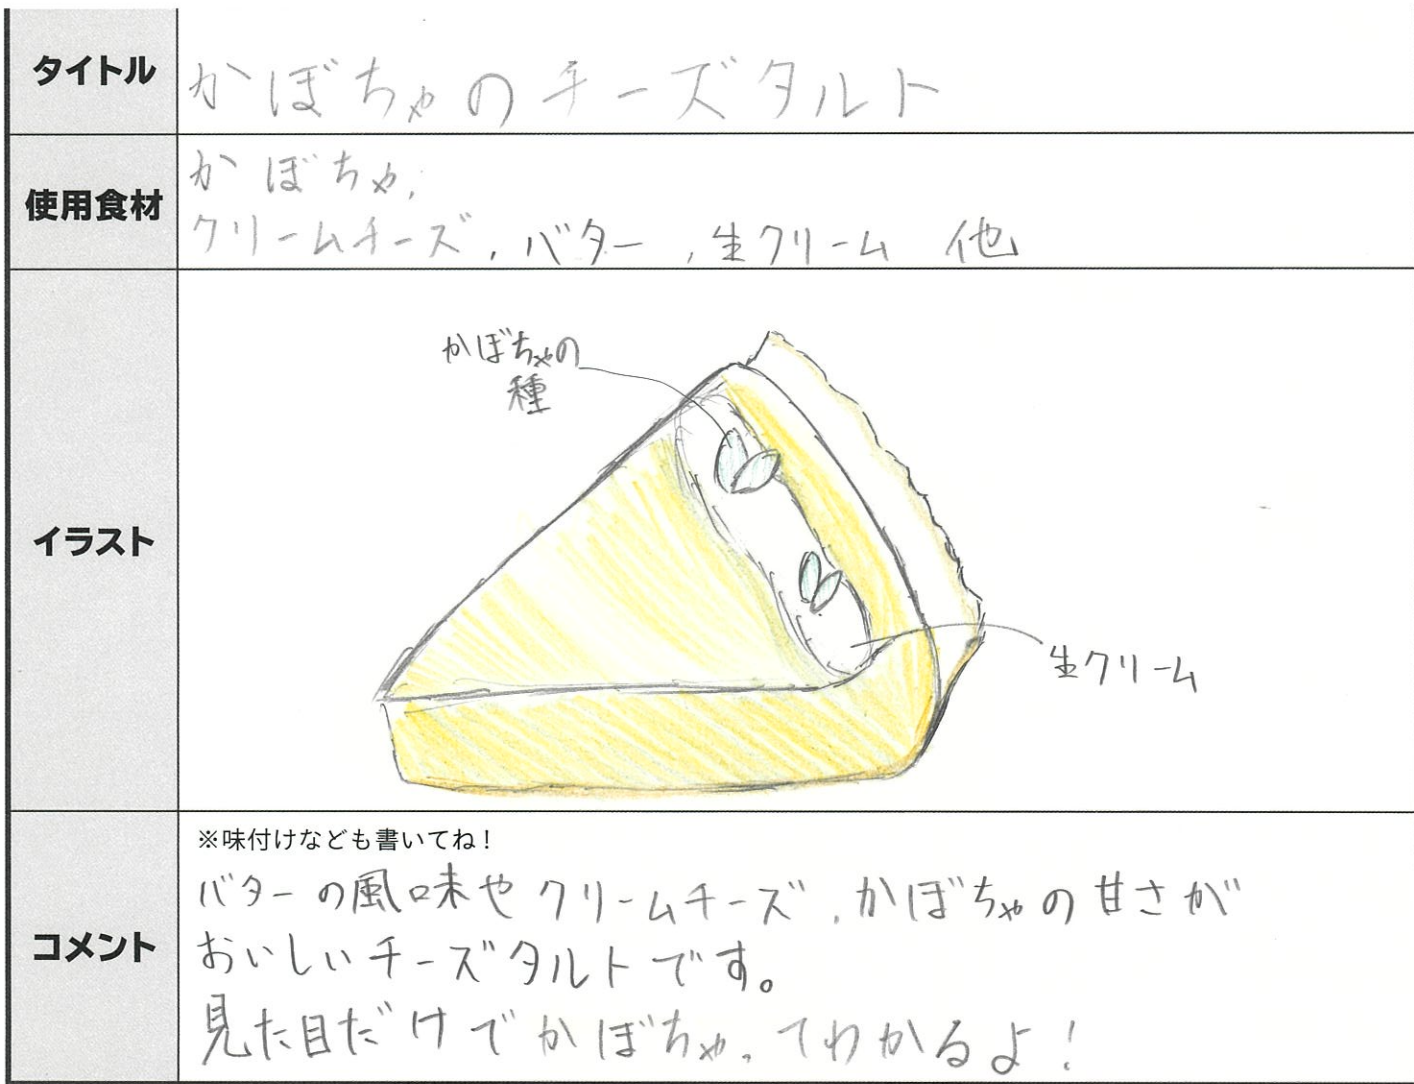 タイトル
かぼちゃのチーズタルト
使用食材
かぼちゃ,
クリームチーズ,バター,生クリーム 他
イラスト
かぼちゃの
種
生クリーム
コメント
※味付けなども書いてね!
バターの風味やクリームチーズ,かぼちゃの甘さが
おいしいチーズタルトです。
見た目だけでかぼちゃってわかるよ!